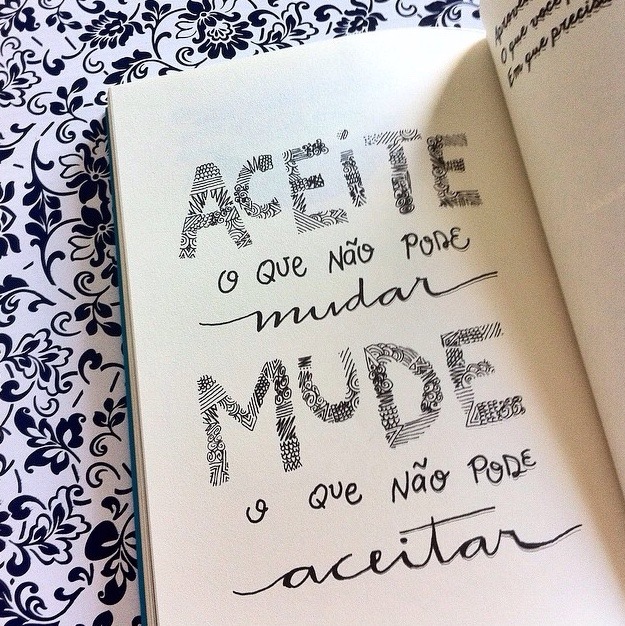 ACEiTE
O QUE NÃO PODE
mudar
MUDE
O QUE NÃO PODE
aceitar
O que você
Em que precis